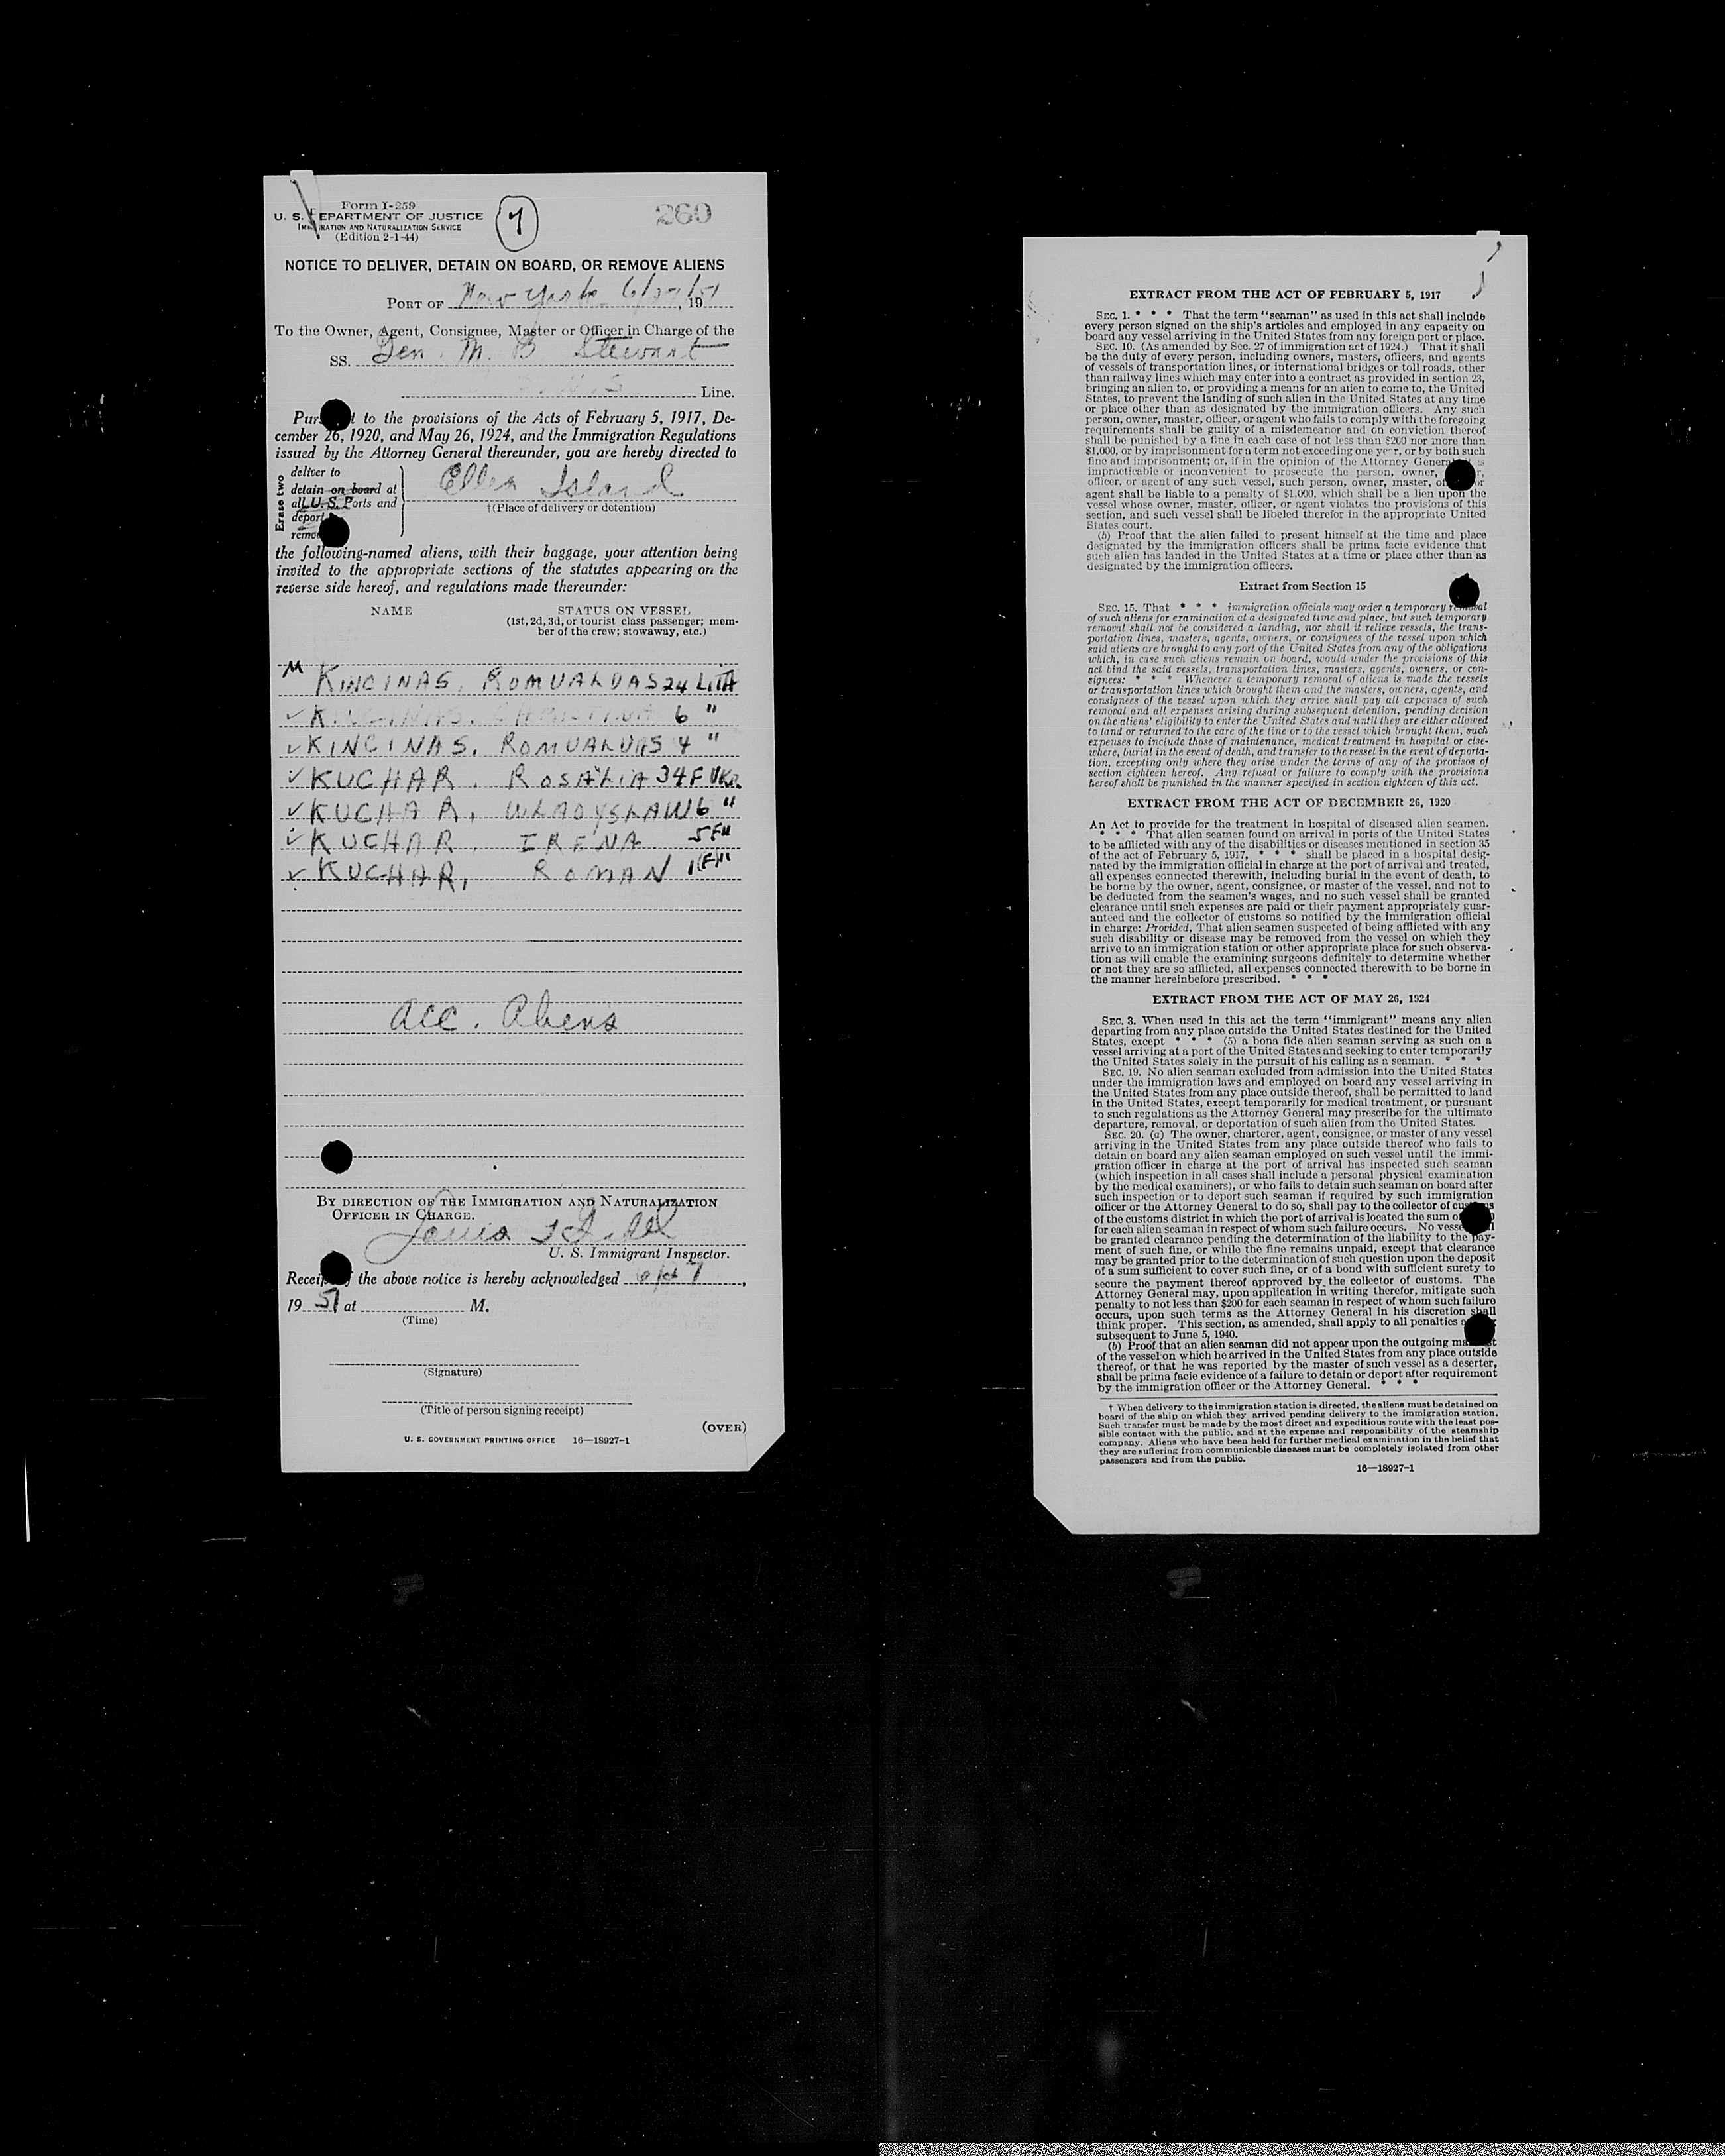 Form I-259
U. S. DEPARTMENT OF JUSTICE
IMMIGRATION AND NATURALIZATION SERVICE
(Edition 2-1-44)
7
260
NOTICE TO DELIVER, DETAIN ON BOARD, OR REMOVE ALIENS
PORT OF New York 6/27/51, 19
To the Owner, Agent, Consignee, Master or Officer in Charge of the
SS. Gen. M. B Stewart
Line.
Pursuant to the provisions of the Acts of February 5, 1917, De-
cember 26, 1920, and May 26, 1924, and the Immigration Regulations
issued by the Attorney General thereunder, you are hereby directed to
Erase two
deliver to
detain on board at
all U. S. Ports and
deport
remove
Ellis Island
†(Place of delivery or detention)
the following-named aliens, with their baggage, your attention being
invited to the appropriate sections of the statutes appearing on the
reverse side hereof, and regulations made thereunder:
NAME STATUS ON VESSEL
(1st, 2d, 3d, or tourist class passenger; mem-
ber of the crew; stowaway, etc.)
M KINCINAS, ROMUALDAS 24 LITH
KINCINAS, 6 "
KINCINAS, ROMUALDAS 4 "
KUCHAR, ROSALIA 34 F UKR.
KUCHAR, WLADYSLAW 6 "
KUCHAR, IRENA 5 F "
KUCHAR, ROMAN 1 (F) "
Acc. Aliens
BY DIRECTION OF THE IMMIGRATION AND NATURALIZATION
OFFICER IN CHARGE.
Louis
U. S. Immigrant Inspector.
Receipt of the above notice is hereby acknowledged
19 51 at M.
(Time)
(Signature)
(Title of person signing receipt)
(OVER)
U. S. GOVERNMENT PRINTING OFFICE 16—18927-1
EXTRACT FROM THE ACT OF FEBRUARY 5, 1917
SEC. 1. * * * That the term "seaman" as used in this act shall include
every person signed on the ship's articles and employed in any capacity on
board any vessel arriving in the United States from any foreign port or place.
SEC. 10. (As amended by Sec. 27 of immigration act of 1924.) That it shall
be the duty of every person, including owners, masters, officers, and agents
of vessels of transportation lines, or international bridges or toll roads, other
than railway lines which may enter into a contract as provided in section 23,
bringing an alien to, or providing a means for an alien to come to, the United
States, to prevent the landing of such alien in the United States at any time
or place other than as designated by the immigration officers. Any such
person, owner, master, officer, or agent who fails to comply with the foregoing
requirements shall be guilty of a misdemeanor and on conviction thereof
shall be punished by a fine in each case of not less than $200 nor more than
$1,000, or by imprisonment for a term not exceeding one year, or by both such
fine and imprisonment; or, if in the opinion of the Attorney General it is
impracticable or inconvenient to prosecute the person, owner, master,
officer, or agent of any such vessel, such person, owner, master, officer, or
agent shall be liable to a penalty of $1,000, which shall be a lien upon the
vessel whose owner, master, officer, or agent violates the provisions of this
section, and such vessel shall be libeled therefor in the appropriate United
States court.
(b) Proof that the alien failed to present himself at the time and place
designated by the immigration officers shall be prima facie evidence that
such alien has landed in the United States at a time or place other than as
designated by the immigration officers.
Extract from Section 15
SEC. 15. That * * * immigration officials may order a temporary removal
of such aliens for examination at a designated time and place, but such temporary
removal shall not be considered a landing, nor shall it relieve vessels, the trans-
portation lines, masters, agents, owners, or consignees of the vessel upon which
said aliens are brought to any port of the United States from any of the obligations
which, in case such aliens remain on board, would under the provisions of this
act bind the said vessels, transportation lines, masters, agents, owners, or con-
signees: * * * Whenever a temporary removal of aliens is made the vessels
or transportation lines which brought them and the masters, owners, agents, and
consignees of the vessel upon which they arrive shall pay all expenses of such
removal and all expenses arising during subsequent detention, pending decision
on the aliens' eligibility to enter the United States and until they are either allowed
to land or returned to the care of the line or to the vessel which brought them, such
expenses to include those of maintenance, medical treatment in hospital or else-
where, burial in the event of death, and transfer to the vessel in the event of deporta-
tion, excepting only where they arise under the terms of any of the provisos of
section eighteen hereof. Any refusal or failure to comply with the provisions
hereof shall be punished in the manner specified in section eighteen of this act.
EXTRACT FROM THE ACT OF DECEMBER 26, 1920
An Act to provide for the treatment in hospital of diseased alien seamen.
* * * That alien seamen found on arrival in ports of the United States
to be afflicted with any of the disabilities or diseases mentioned in section 35
of the act of February 5, 1917, * * * shall be placed in a hospital desig-
nated by the immigration official in charge at the port of arrival and treated,
all expenses connected therewith, including burial in the event of death, to
be borne by the owner, agent, consignee, or master of the vessel, and not to
be deducted from the seamen's wages, and no such vessel shall be granted
clearance until such expenses are paid or their payment appropriately guar-
anteed and the collector of customs so notified by the immigration official
in charge: Provided, That alien seamen suspected of being afflicted with any
such disability or disease may be removed from the vessel on which they
arrive to an immigration station or other appropriate place for such observa-
tion as will enable the examining surgeons definitely to determine whether
or not they are so afflicted, all expenses connected therewith to be borne in
the manner hereinbefore prescribed. * * *
EXTRACT FROM THE ACT OF MAY 26, 1924
SEC. 3. When used in this act the term "immigrant" means any alien
departing from any place outside the United States destined for the United
States, except * * * (5) a bona fide alien seaman serving as such on a
vessel arriving at a port of the United States and seeking to enter temporarily
the United States solely in the pursuit of his calling as a seaman. * * *
SEC. 19. No alien seaman excluded from admission into the United States
under the immigration laws and employed on board any vessel arriving in
the United States from any place outside thereof, shall be permitted to land
in the United States, except temporarily for medical treatment, or pursuant
to such regulations as the Attorney General may prescribe for the ultimate
departure, removal, or deportation of such alien from the United States.
SEC. 20. (a) The owner, charterer, agent, consignee, or master of any vessel
arriving in the United States from any place outside thereof who fails to
detain on board any alien seaman employed on such vessel until the immi-
gration officer in charge at the port of arrival has inspected such seaman
(which inspection in all cases shall include a personal physical examination
by the medical examiners), or who fails to detain such seaman on board after
such inspection or to deport such seaman if required by such immigration
officer or the Attorney General to do so, shall pay to the collector of customs
of the customs district in which the port of arrival is located the sum of
for each alien seaman in respect of whom such failure occurs. No vessel shall
be granted clearance pending the determination of the liability to the pay-
ment of such fine, or while the fine remains unpaid, except that clearance
may be granted prior to the determination of such question upon the deposit
of a sum sufficient to cover such fine, or of a bond with sufficient surety to
secure the payment thereof approved by the collector of customs. The
Attorney General may, upon application in writing therefor, mitigate such
penalty to not less than $200 for each seaman in respect of whom such failure
occurs, upon such terms as the Attorney General in his discretion shall
think proper. This section, as amended, shall apply to all penalties
subsequent to June 5, 1940.
(b) Proof that an alien seaman did not appear upon the outgoing manifest
of the vessel on which he arrived in the United States from any place outside
thereof, or that he was reported by the master of such vessel as a deserter,
shall be prima facie evidence of a failure to detain or deport after requirement
by the immigration officer or the Attorney General. * * *
† When delivery to the immigration station is directed, the aliens must be detained on
board of the ship on which they arrived pending delivery to the immigration station.
Such transfer must be made by the most direct and expeditious route with the least pos-
sible contact with the public, and at the expense and responsibility of the steamship
company. Aliens who have been held for further medical examination in the belief that
they are suffering from communicable diseases must be completely isolated from other
passengers and from the public.
16—18927-1